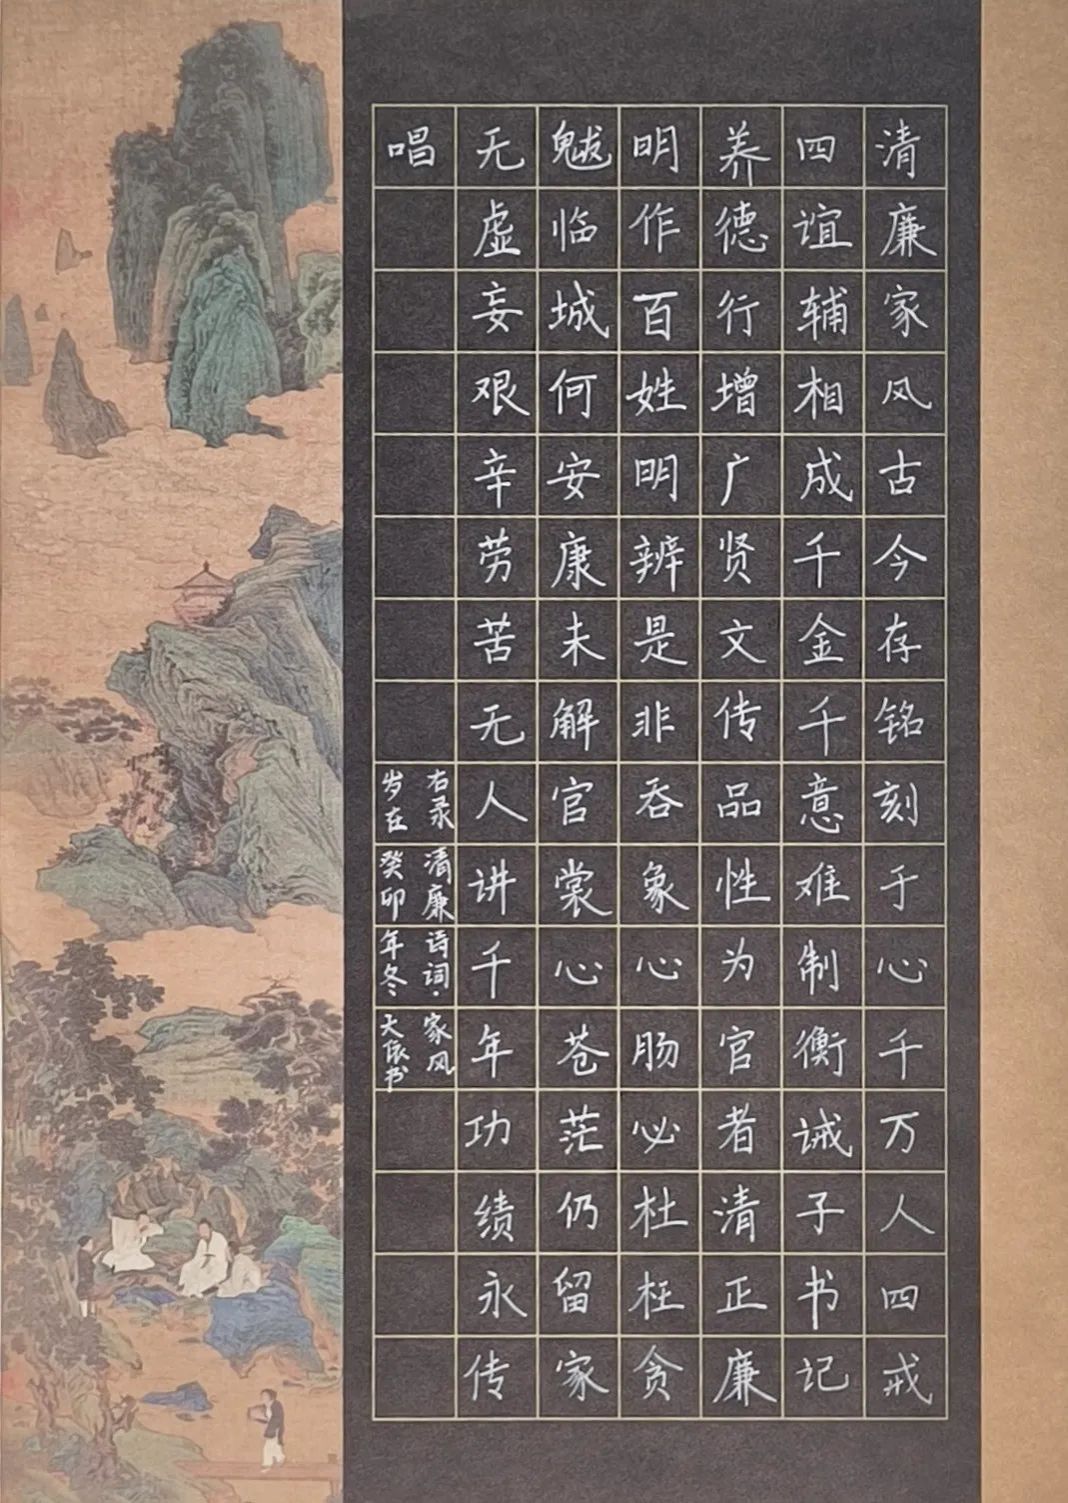 清廉家风古今存铭刻于心千万人四戒
四谊辅相成千金千意难制衡诫子书记
养德行增广贤文传品性为官者清正廉
明作百姓明辨是非吞象心肠必杜枉贪
魃临城何安康未解官裳心苍茫仍留家
无虚妄艰辛劳苦无人讲千年功绩永传
唱
右录清廉诗词·家风
岁在癸卯年冬大依书